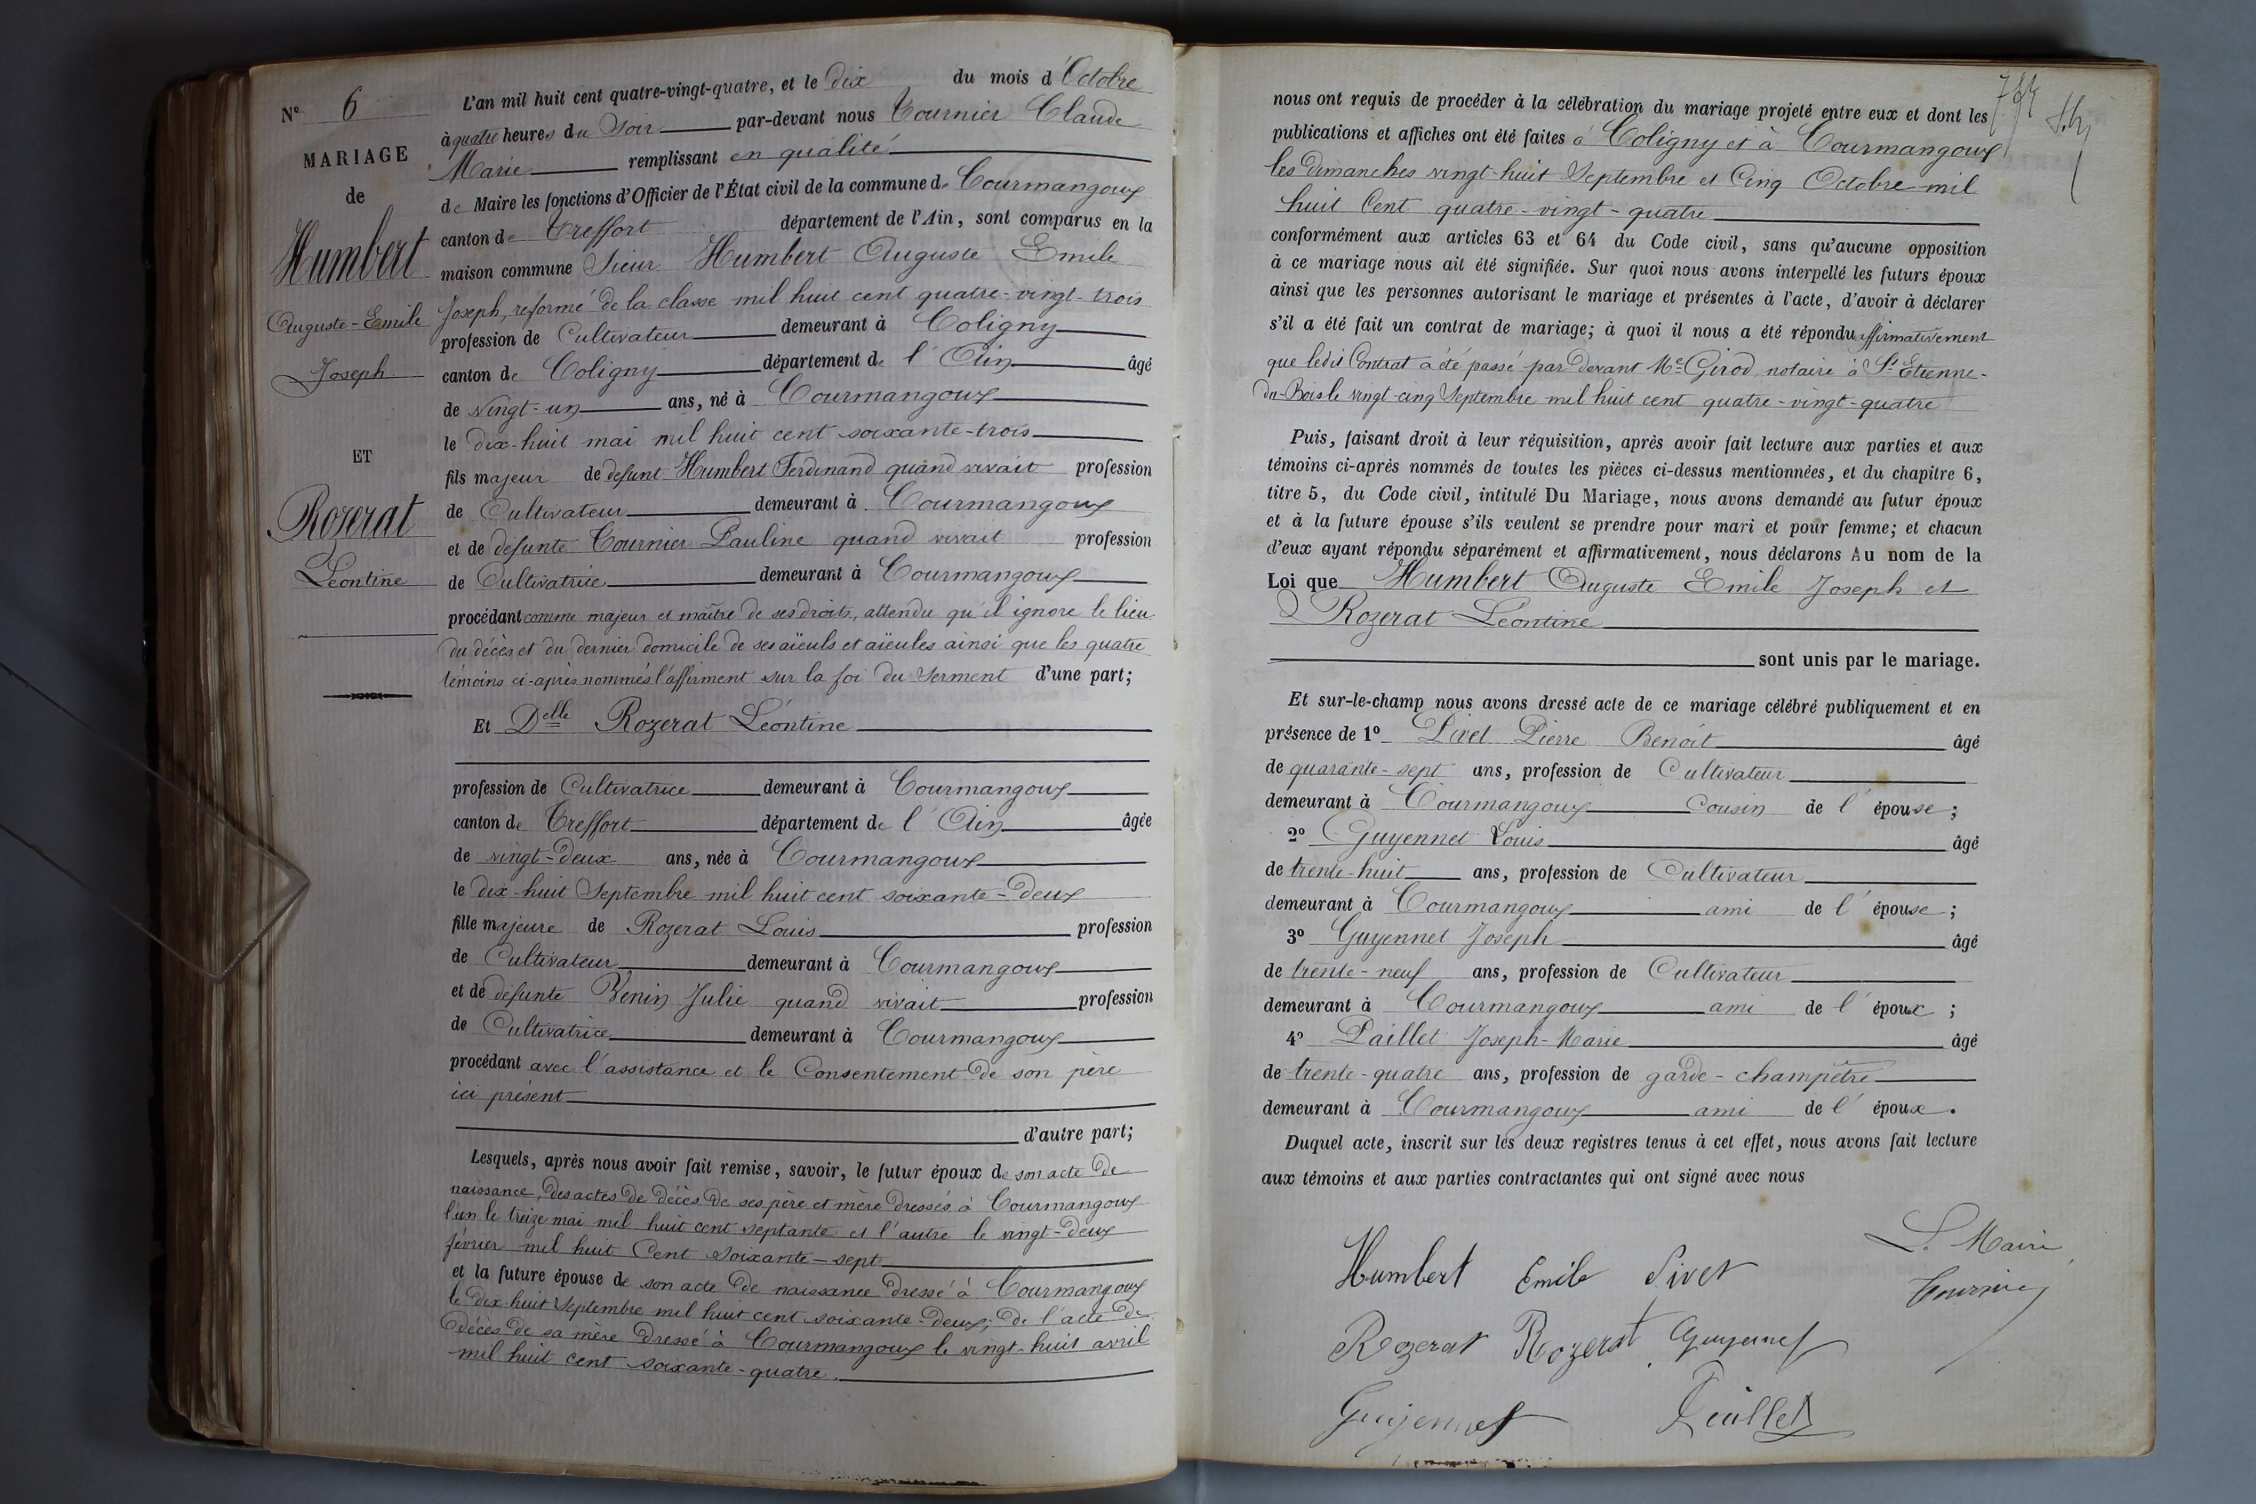 N° 6
MARIAGE
de
Humbert
Auguste-Emile
Joseph
ET
Rozerat
Léontine
L'an mil huit cent quatre-vingt-quatre, et le dix du mois d'Octobre
à quatre heures du Soir par-devant nous Tournier Claude
Marie remplissant en qualité
de Maire les fonctions d'Officier de l'État civil de la commune de Courmangoux
canton de Treffort département de l'Ain, sont comparus en la
maison commune Sieur Humbert Auguste Emile
Joseph, réformé de la classe mil huit cent quatre-vingt-trois
profession de Cultivateur demeurant à Coligny
canton de Coligny département de l'Ain âgé
de vingt-un ans, né à Courmangoux
le dix-huit mai mil huit cent soixante-trois
fils majeur de défunt Humbert Ferdinand quand vivait profession
de Cultivateur demeurant à Courmangoux
et de défunte Tournier Pauline quand vivait profession
de Cultivatrice demeurant à Courmangoux
procédant comme majeur et maître de ses droits, attendu qu'il ignore le lieu
du décès et du dernier domicile de ses aïeuls et aïeules ainsi que les quatre
témoins ci-après nommés l'affirment sur la foi du Serment d'une part;
Et Delle Rozerat Léontine
profession de Cultivatrice demeurant à Courmangoux
canton de Treffort département de l'Ain âgée
de vingt-deux ans, née à Courmangoux
le dix-huit Septembre mil huit cent soixante-deux
fille majeure de Rozerat Louis profession
de Cultivateur demeurant à Courmangoux
et de défunte Benin Julie quand vivait profession
de Cultivatrice demeurant à Courmangoux
procédant avec l'assistance et le Consentement de son père
ici présent
d'autre part;
Lesquels, après nous avoir fait remise, savoir, le futur époux de son acte de
naissance, des actes de décès de ses père et mère dressés à Courmangoux
l'un le treize mai mil huit cent septante et l'autre le vingt-deux
février mil huit Cent soixante-sept
et la future épouse de son acte de naissance dressé à Courmangoux
le dix-huit Septembre mil huit cent soixante-deux; de l'acte de
décès de sa mère dressé à Courmangoux le vingt-huit avril
mil huit cent soixante-quatre.
nous ont requis de procéder à la célébration du mariage projeté entre eux et dont les
publications et affiches ont été faites à Coligny et à Courmangoux
les dimanches vingt-huit Septembre et Cinq Octobre mil
huit Cent quatre-vingt-quatre
conformément aux articles 63 et 64 du Code civil, sans qu'aucune opposition
à ce mariage nous ait été signifiée. Sur quoi nous avons interpellé les futurs époux
ainsi que les personnes autorisant le mariage et présentes à l'acte, d'avoir à déclarer
s'il a été fait un contrat de mariage; à quoi il nous a été répondu affirmativement
que ledit Contrat a été passé par Devant Me Girod notaire à St Etienne-
du-Bois le vingt-cinq Septembre mil huit cent quatre-vingt-quatre
Puis, faisant droit à leur réquisition, après avoir fait lecture aux parties et aux
témoins ci-après nommés de toutes les pièces ci-dessus mentionnées, et du chapitre 6,
titre 5, du Code civil, intitulé Du Mariage, nous avons demandé au futur époux
et à la future épouse s'ils veulent se prendre pour mari et pour femme; et chacun
d'eux ayant répondu séparément et affirmativement, nous déclarons Au nom de la
Loi que Humbert Auguste Emile Joseph et
Rozerat Léontine
sont unis par le mariage.
Et sur-le-champ nous avons dressé acte de ce mariage célébré publiquement et en
présence de 1° Livet Pierre Benoit âgé
de quarante-sept ans, profession de Cultivateur
demeurant à Courmangoux cousin de l'épouse;
2° Guyennet Louis âgé
de trente-huit ans, profession de Cultivateur
demeurant à Courmangoux ami de l'épouse;
3° Guyennet Joseph âgé
de trente-neuf ans, profession de Cultivateur
demeurant à Courmangoux ami de l'époux;
4° Paillet Joseph-Marie âgé
de trente-quatre ans, profession de garde-champêtre
demeurant à Courmangoux ami de l'époux.
Duquel acte, inscrit sur les deux registres tenus à cet effet, nous avons fait lecture
aux témoins et aux parties contractantes qui ont signé avec nous
Humbert Emile Livet
L. Maire
Tournier
Rozerat Rozerat Guyennet
Guyennet Paillet